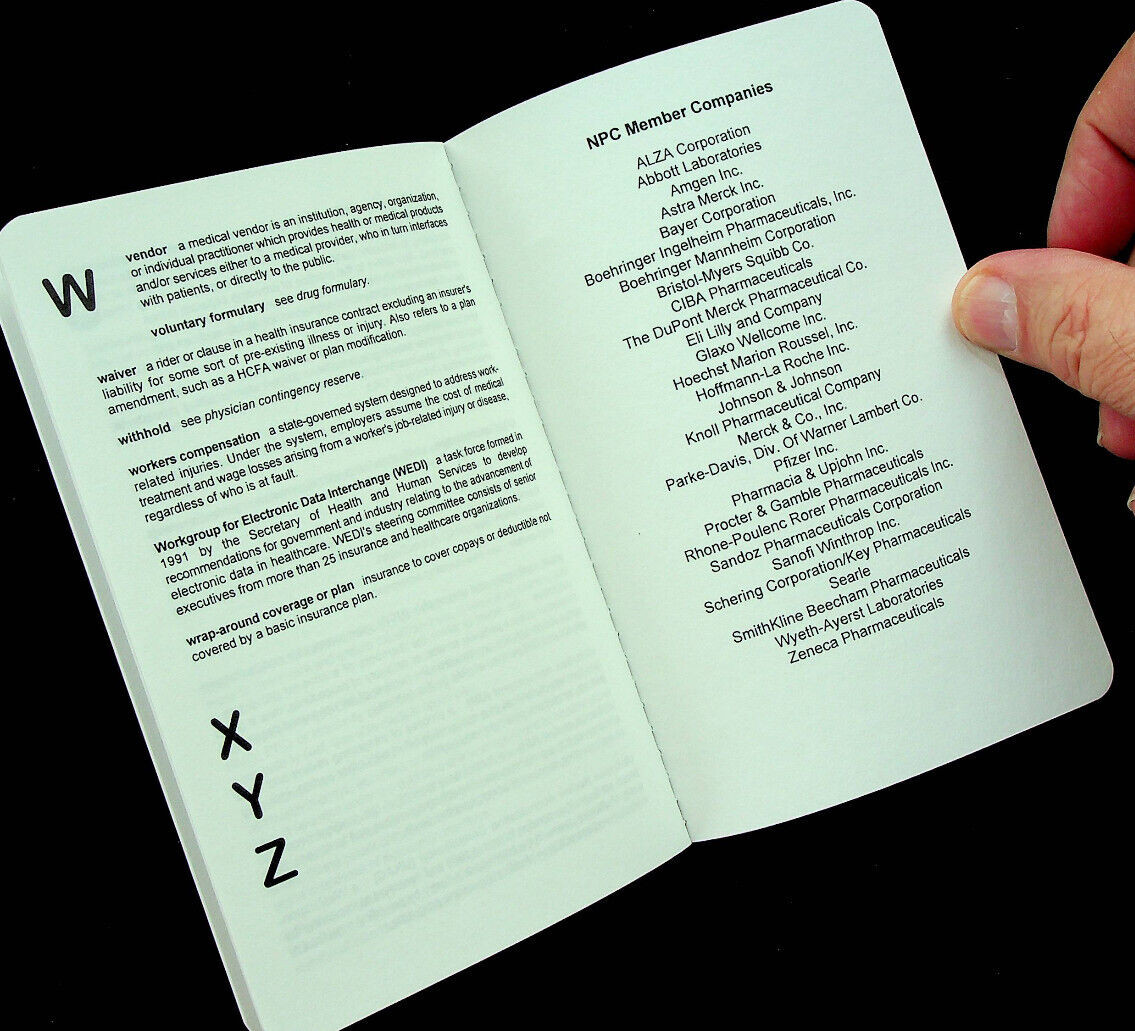 vendor a medical vendor is an institution, agency, organization,
or individual practitioner which provides health or medical products
and/or services either to a medical provider, who in turn interfaces
with patients, or directly to the public.
W
voluntary formulary see drug formulary.
waiver a rider or clause in a health insurance contract excluding an insurer's
liability for some sort of pre-existing illness or injury. Also refers to a plan
amendment, such as a HCFA waiver or plan modification.
withhold see physician contingency reserve.
workers compensation a state-governed system designed to address work-
related injuries. Under the system, employers assume the cost of medical
treatment and wage losses arising from a worker's job-related injury or disease,
regardless of who is at fault.
Workgroup for Electronic Data Interchange (WEDI) a task force formed in
1991 by the Secretary of Health and Human Services to develop
recommendations for government and industry relating to the advancement of
electronic data in healthcare. WEDI's steering committee consists of senior
executives from more than 25 insurance and healthcare organizations.
wrap-around coverage or plan insurance to cover copays or deductible not
covered by a basic insurance plan.
X
Y
Z
NPC Member Companies
ALZA Corporation
Abbott Laboratories
Amgen Inc.
Astra Merck Inc.
Bayer Corporation
Boehringer Ingelheim Pharmaceuticals, Inc.
Boehringer Mannheim Corporation
Bristol-Myers Squibb Co.
CIBA Pharmaceuticals
The DuPont Merck Pharmaceutical Co.
Eli Lilly and Company
Glaxo Wellcome Inc.
Hoechst Marion Roussel, Inc.
Hoffmann-La Roche Inc.
Johnson & Johnson
Knoll Pharmaceutical Company
Merck & Co., Inc.
Parke-Davis, Div. Of Warner Lambert Co.
Pfizer Inc.
Pharmacia & Upjohn Inc.
Procter & Gamble Pharmaceuticals
Rhone-Poulenc Rorer Pharmaceuticals Inc.
Sandoz Pharmaceuticals Corporation
Sanofi Winthrop Inc.
Schering Corporation/Key Pharmaceuticals
Searle
SmithKline Beecham Pharmaceuticals
Wyeth-Ayerst Laboratories
Zeneca Pharmaceuticals